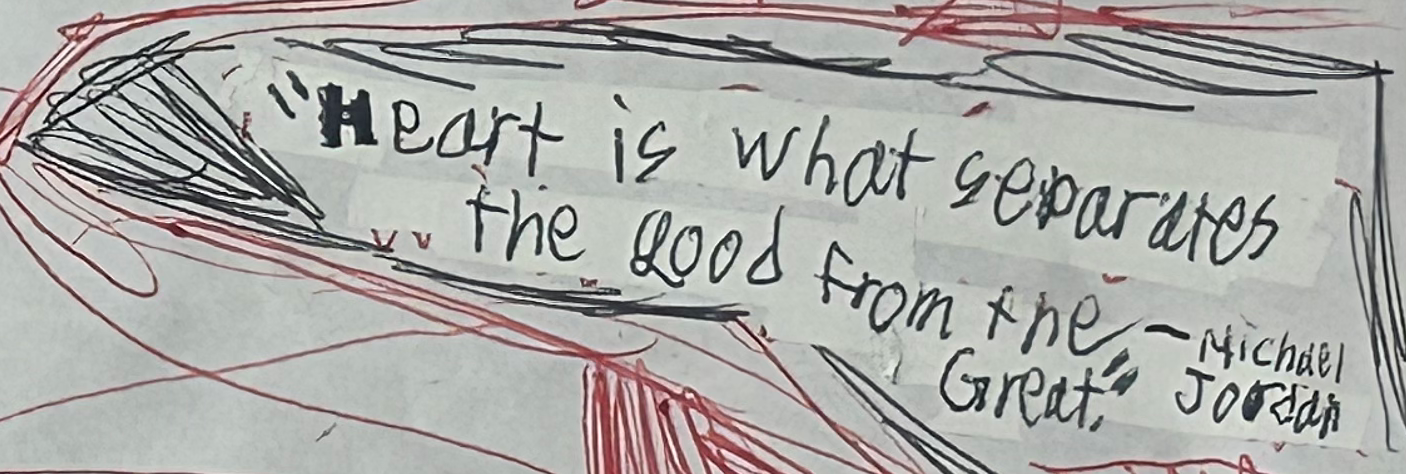 "Heart is what separates
the good from the
Great." - Michael
Jordan